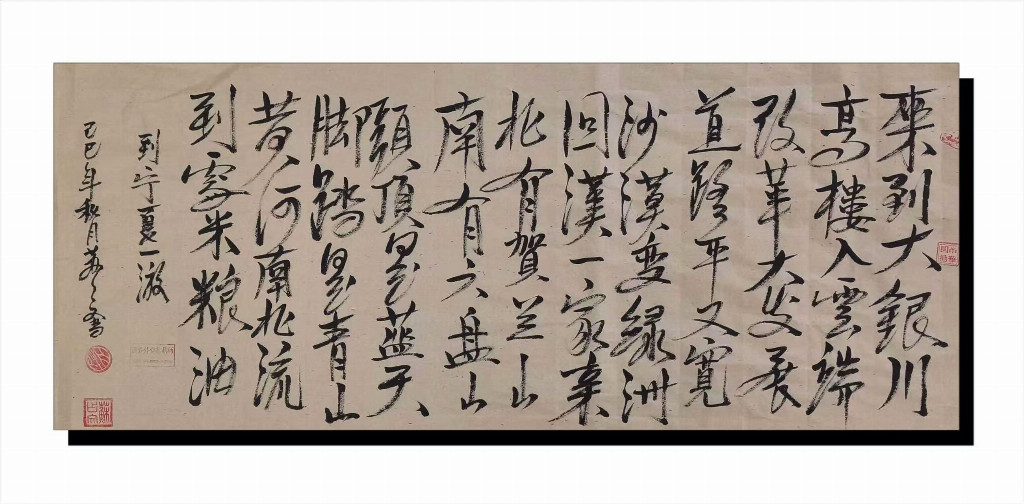 來到大銀川
高樓入雲端
改革大发展
道路平又寬
沙漠变绿洲
回漢一家亲
北有賀兰山
南有六盘山
頭頂是蓝天
脚踏是青山
黄河南北流
到處米粮油
到宁夏一
巳年秋月苏